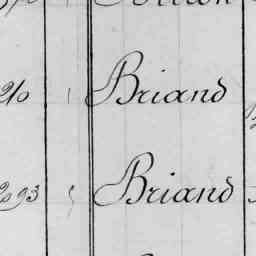 210 Briand
2093 Briand